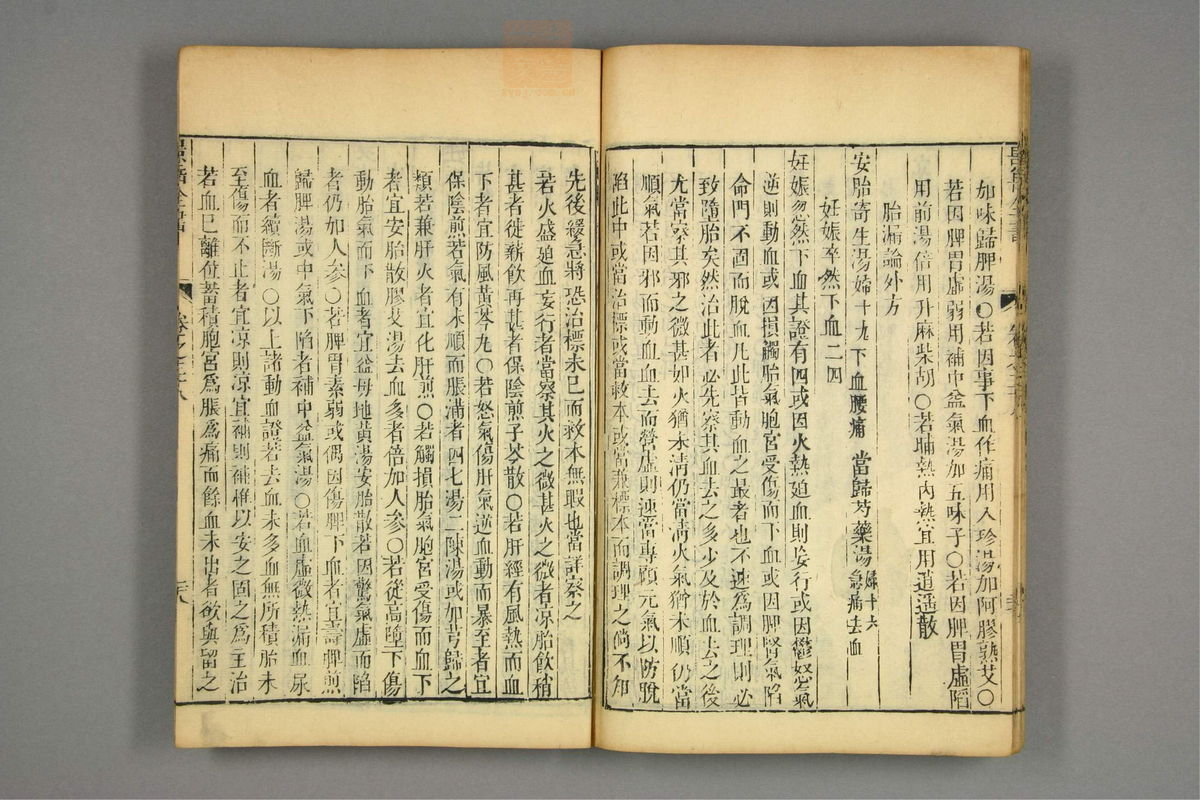 加味歸脾湯○若因事下血作痛用八珍湯加阿膠熟艾○
若因脾胃虛弱用補中益氣湯加五味子○若因脾胃虛陷
用前湯倍用升麻柴胡○若晡熱內熱宜用逍遥散
胎漏論外方
安胎寄生湯婦十九下血腰痛 當歸芍藥湯婦十六急痛去血
妊娠卒然下血二四
妊娠忽然下血其證有四或因火熱廹血則妄行或因鬱怒氣
逆則動血或因損觸胎氣胞宮受傷而下血或因脾腎氣陷
命門不固而脫血凡此皆動血之最者也不速爲調理則必
致墮胎矣然治此者必先察其血去之多少及於血去之後
尤當察其邪之微甚如火猶未清仍當清火氣猶未順仍當
順氣若因邪而動血血去而營虛則速當專顧元氣以防脫
陷此中或當治標或當救本或當兼標本而調理之倘不知
先後緩急將恐治標未已而救本無暇也當詳察之
若火盛廹血妄行者當察其火之微甚火之微者凉胎飲稍
甚者徙薪飲再甚者保陰煎子芩散○若肝經有風熱而血
下者宜防風黃芩丸○若怒氣傷肝氣逆血動而暴至者宜
保陰煎若氣有未順而脹滿者四七湯二陳湯或加芎歸之
類若兼肝火者宜化肝煎○若觸損胎氣胞宮受傷而血下
者宜安胎散膠艾湯去血多者倍加人參○若從高墮下傷
動胎氣而下血者宜益母地黃湯安胎散若因驚氣虛而陷
者仍加人參○若脾胃素弱或偶因傷脾下血者宜壽脾煎
歸脾湯或中氣下陷者補中益氣湯○若血虛微熱漏血尿
血者續斷湯○以上諸動血證若去血未多血無所積胎未
至傷而不止者宜凉則凉宜補則補惟以安之固之爲主治
若血已離位蓄積胞宮爲脹爲痛而餘血未出者欲與留之